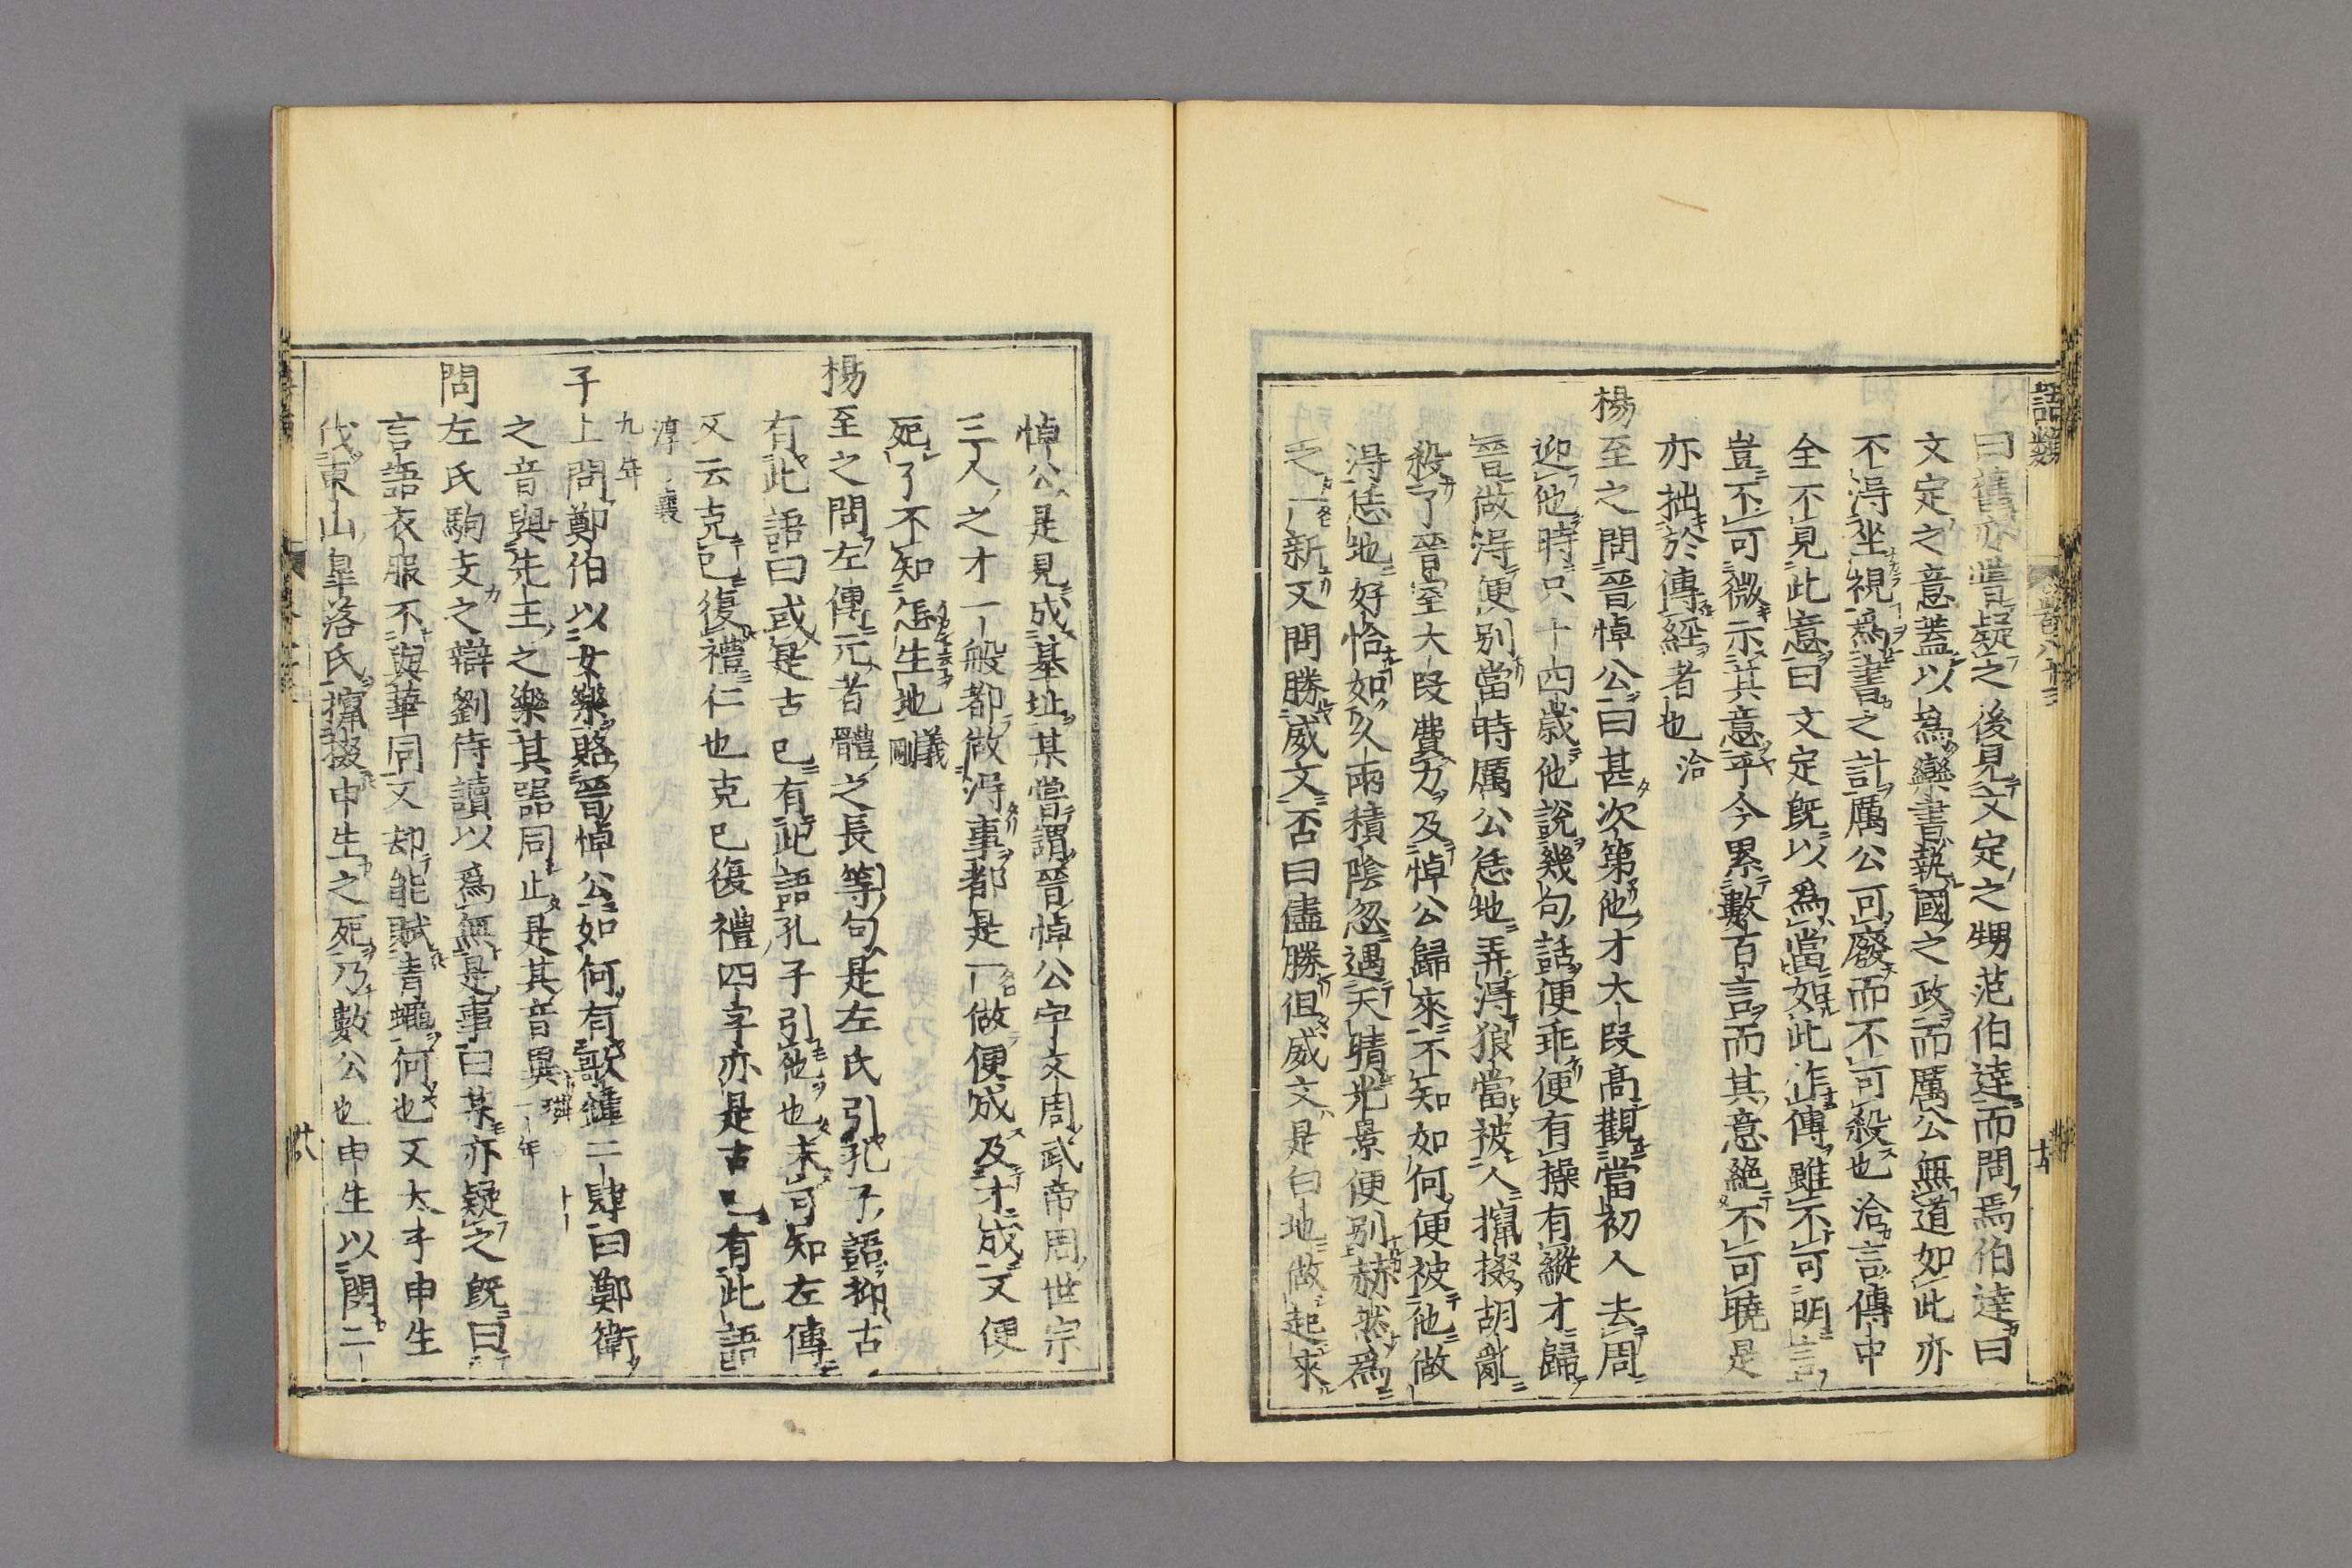 語類
曰舊亦嘗疑之後見文定之甥范伯逹而問焉伯逹曰
文定之意蓋以為欒書執國之政而厲公無道如此亦
不淂坐視為書之計厲公可廢而不可殺也洽言傳中
全不見此意曰文定既以為當如此作傳雖不可明言
豈不可微示其意乎今累數百言而其意絕不可曉是
亦拙於傳經者也洽
楊至之問晉悼公曰甚次第他才大段高觀當初人去周
迎他時只十四歲他說幾句話便乖便有操有縱才歸
晉做淂便别當時厲公恁地弄淂狼當被人攛掇胡亂
殺了晉室大段費力及悼公歸來不知如何便被他做
淂恁地好恰如久雨積陰忽遇天晴光景便别赫然為
之一新又問勝威文否曰儘勝但威文是白地做起來
悼公是見成基址某嘗謂晉悼公宇文周武帝周世宗
三人之才一般都做淂事都是一做便成及才成又便
死了不知怎生地義剛
楊至之問左傳元者體之長等句是左氏引孔子語抑古
有此語曰或是古已有此語孔子引他也未可知左傳
又云克己復禮仁也克已復禮四字亦是古已有此語
淳襄
九年
子上問鄭伯以女樂賂晉悼公如何有歌鐘二肆曰鄭衛
之音與先王之樂其器同止是其音異璘十一年
問左氏駒支之辯劉侍讀以為無是事曰某亦疑之既曰
言語衣服不與華同又却能賦青蠅何也又太子申生
伐東山皐落氏攛掇申生之死乃數公也申生以閔二